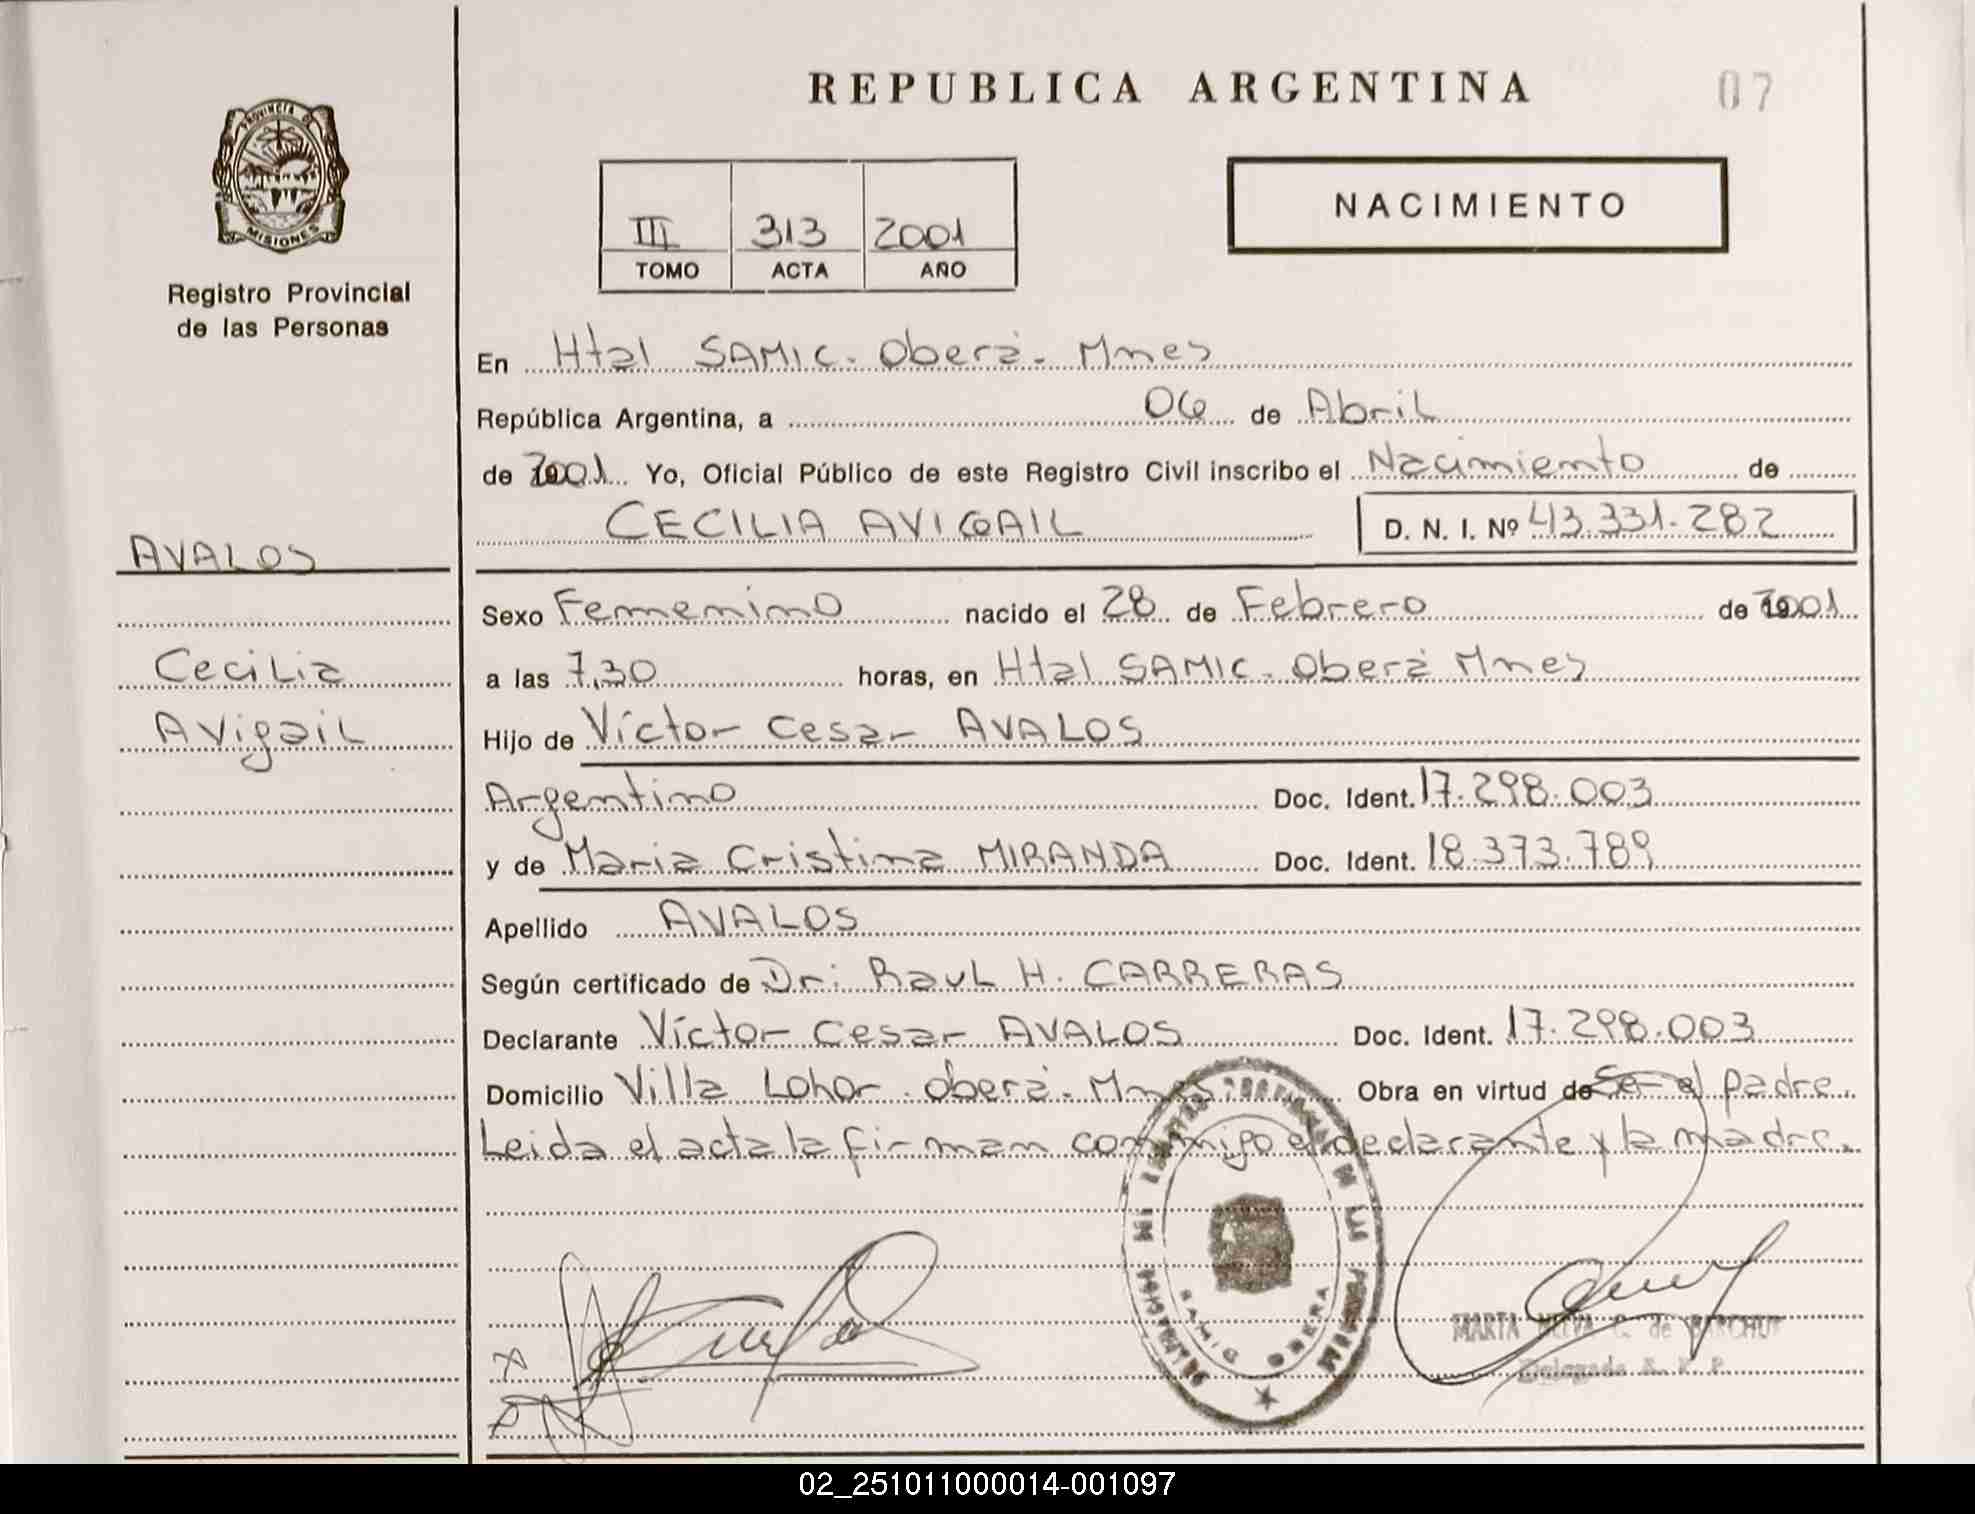 REPUBLICA ARGENTINA
07
PROVINCIA DE
MISIONES
Registro Provincial
de las Personas
III 313 2001
TOMO ACTA AÑO
NACIMIENTO
En Htal SAMIC. Oberá. Mnes
República Argentina, a 06 de Abril
de 2001 Yo, Oficial Público de este Registro Civil inscribo el Nacimiento de
CECILIA AVIGAIL D. N. I. Nº 43.331.282
AVALOS
Cecilia
Avigail
Sexo Femenino nacido el 28 de Febrero de 2001
a las 7,30 horas, en Htal SAMIC. Oberá Mnes
Hijo de Víctor Cesar AVALOS
Argentino Doc. Ident. 17.298.003
y de Maria Cristina MIRANDA Doc. Ident. 18.373.789
Apellido AVALOS
Según certificado de Dr: Raul H. CARRERAS
Declarante Víctor Cesar AVALOS Doc. Ident. 17.298.003
Domicilio Villa Lohor. Oberá. Mnes Obra en virtud de Ser el padre.
Leida el acta la firman conmigo el declarante y la madre.
OBERA
MARTA C. de
Delegada R. P.
02_251011000014-001097